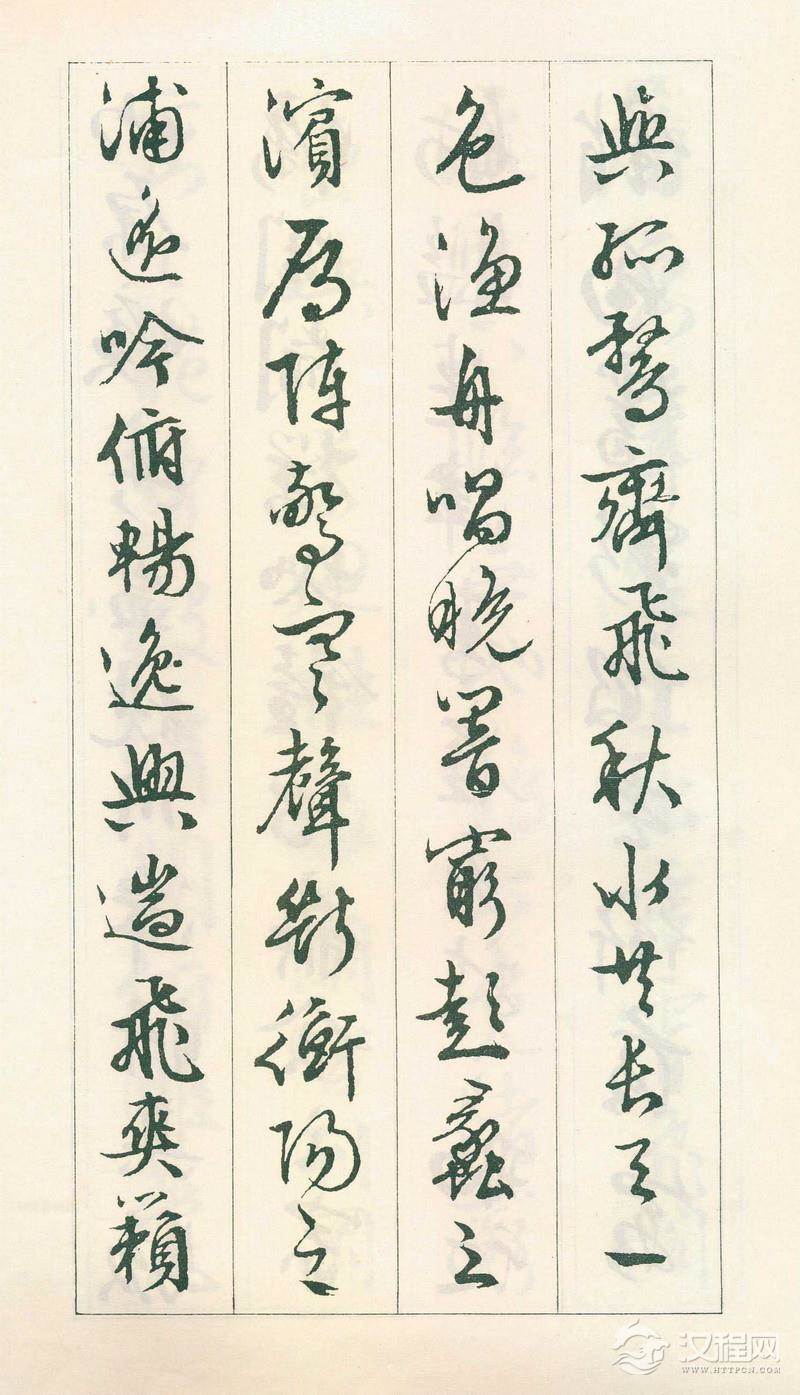 與孤鶩齊飛秋水共長天一
色漁舟唱晚響窮彭蠡之
濱雁陣驚寒聲斷衡陽之
浦遥吟俯暢逸興遄飛爽籟
汉程网
WWW.HTTPCN.COM